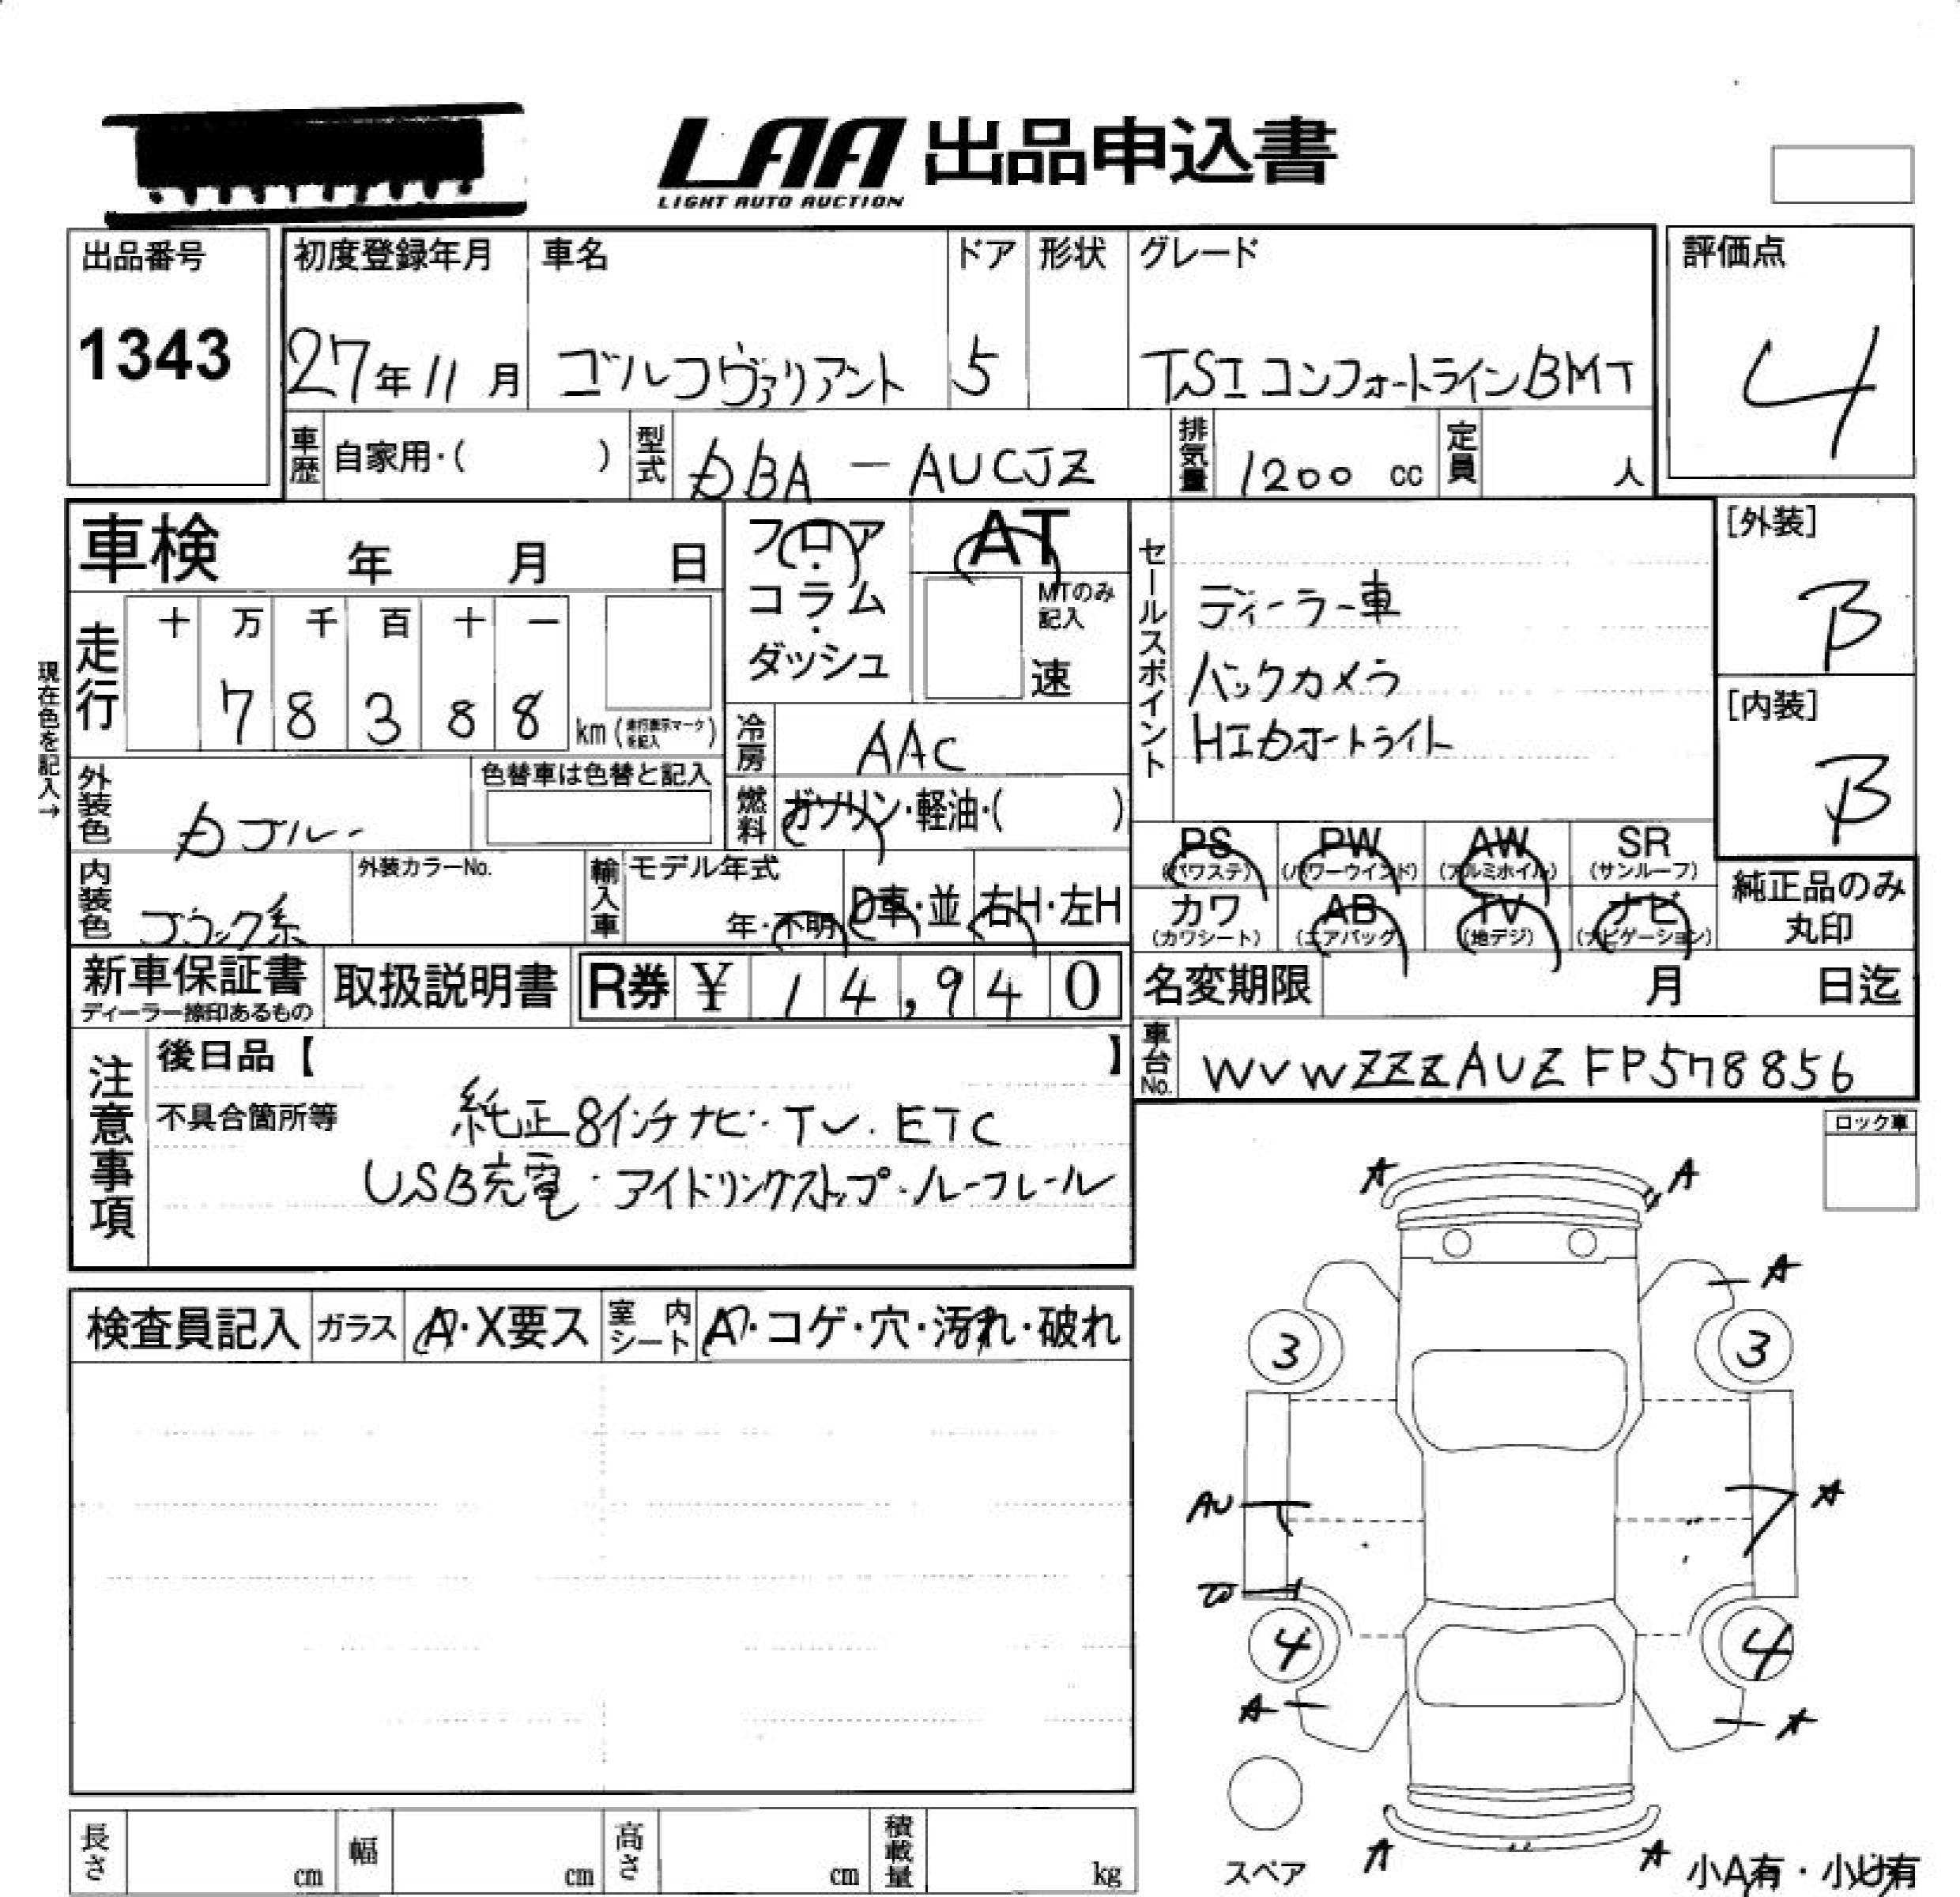 LAA 出品申込書
LIGHT AUTO AUCTION
出品番号
1343
初度登録年月
27年11月
車名
ゴルフヴァリアント
ドア
5
形状
グレード
TSIコンフォートラインBMT
評価点
4
車歴 自家用・( )
型式 DBA-AUCJZ
排気量 1200 cc
定員 人
車検 年 月 日
フロア・コラム・ダッシュ
AT
MTのみ記入
速
セールスポイント
ディーラー車
バックカメラ
HIDオートライト
[外装]
B
[内装]
B
現在色を記入→
走行
十 万 千 百 十 一
7 8 3 8 8
km(走行表示マークを記入)
冷房 AAC
燃料 ガソリン・軽油・( )
外装色 Dブルー
色替車は色替と記入
内装色 ブラック系
外装カラーNo.
輸入車 モデル年式
年・不明
D車・並
右H・左H
PS (パワステ)
PW (パワーウインド)
AW (アルミホイル)
SR (サンルーフ)
カワ (カワシート)
AB (エアバッグ)
TV (地デジ)
ナビ (ナビゲーション)
純正品のみ丸印
新車保証書
ディーラー捺印あるもの
取扱説明書
R券 ¥ 14,940
名変期限 月 日迄
車台No. WVWZZZAUZFP578856
注意事項
後日品【 】
不具合箇所等
純正8インチナビ・TV・ETC
USB充電・アイドリングストップ・ルーフレール
ロック車
検査員記入
ガラス A・X要ス
室内シート A・コゲ・穴・汚れ・破れ
A A
A
3 3
AU A
4 4
A A
A A
スペア
小A有・小U有
長さ cm
幅 cm
高さ cm
積載量 kg